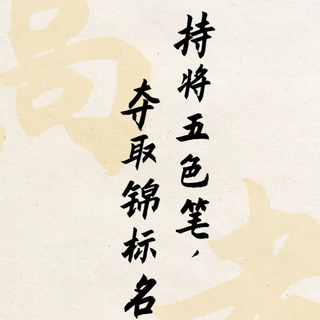 持将五色笔，
夺取锦标名